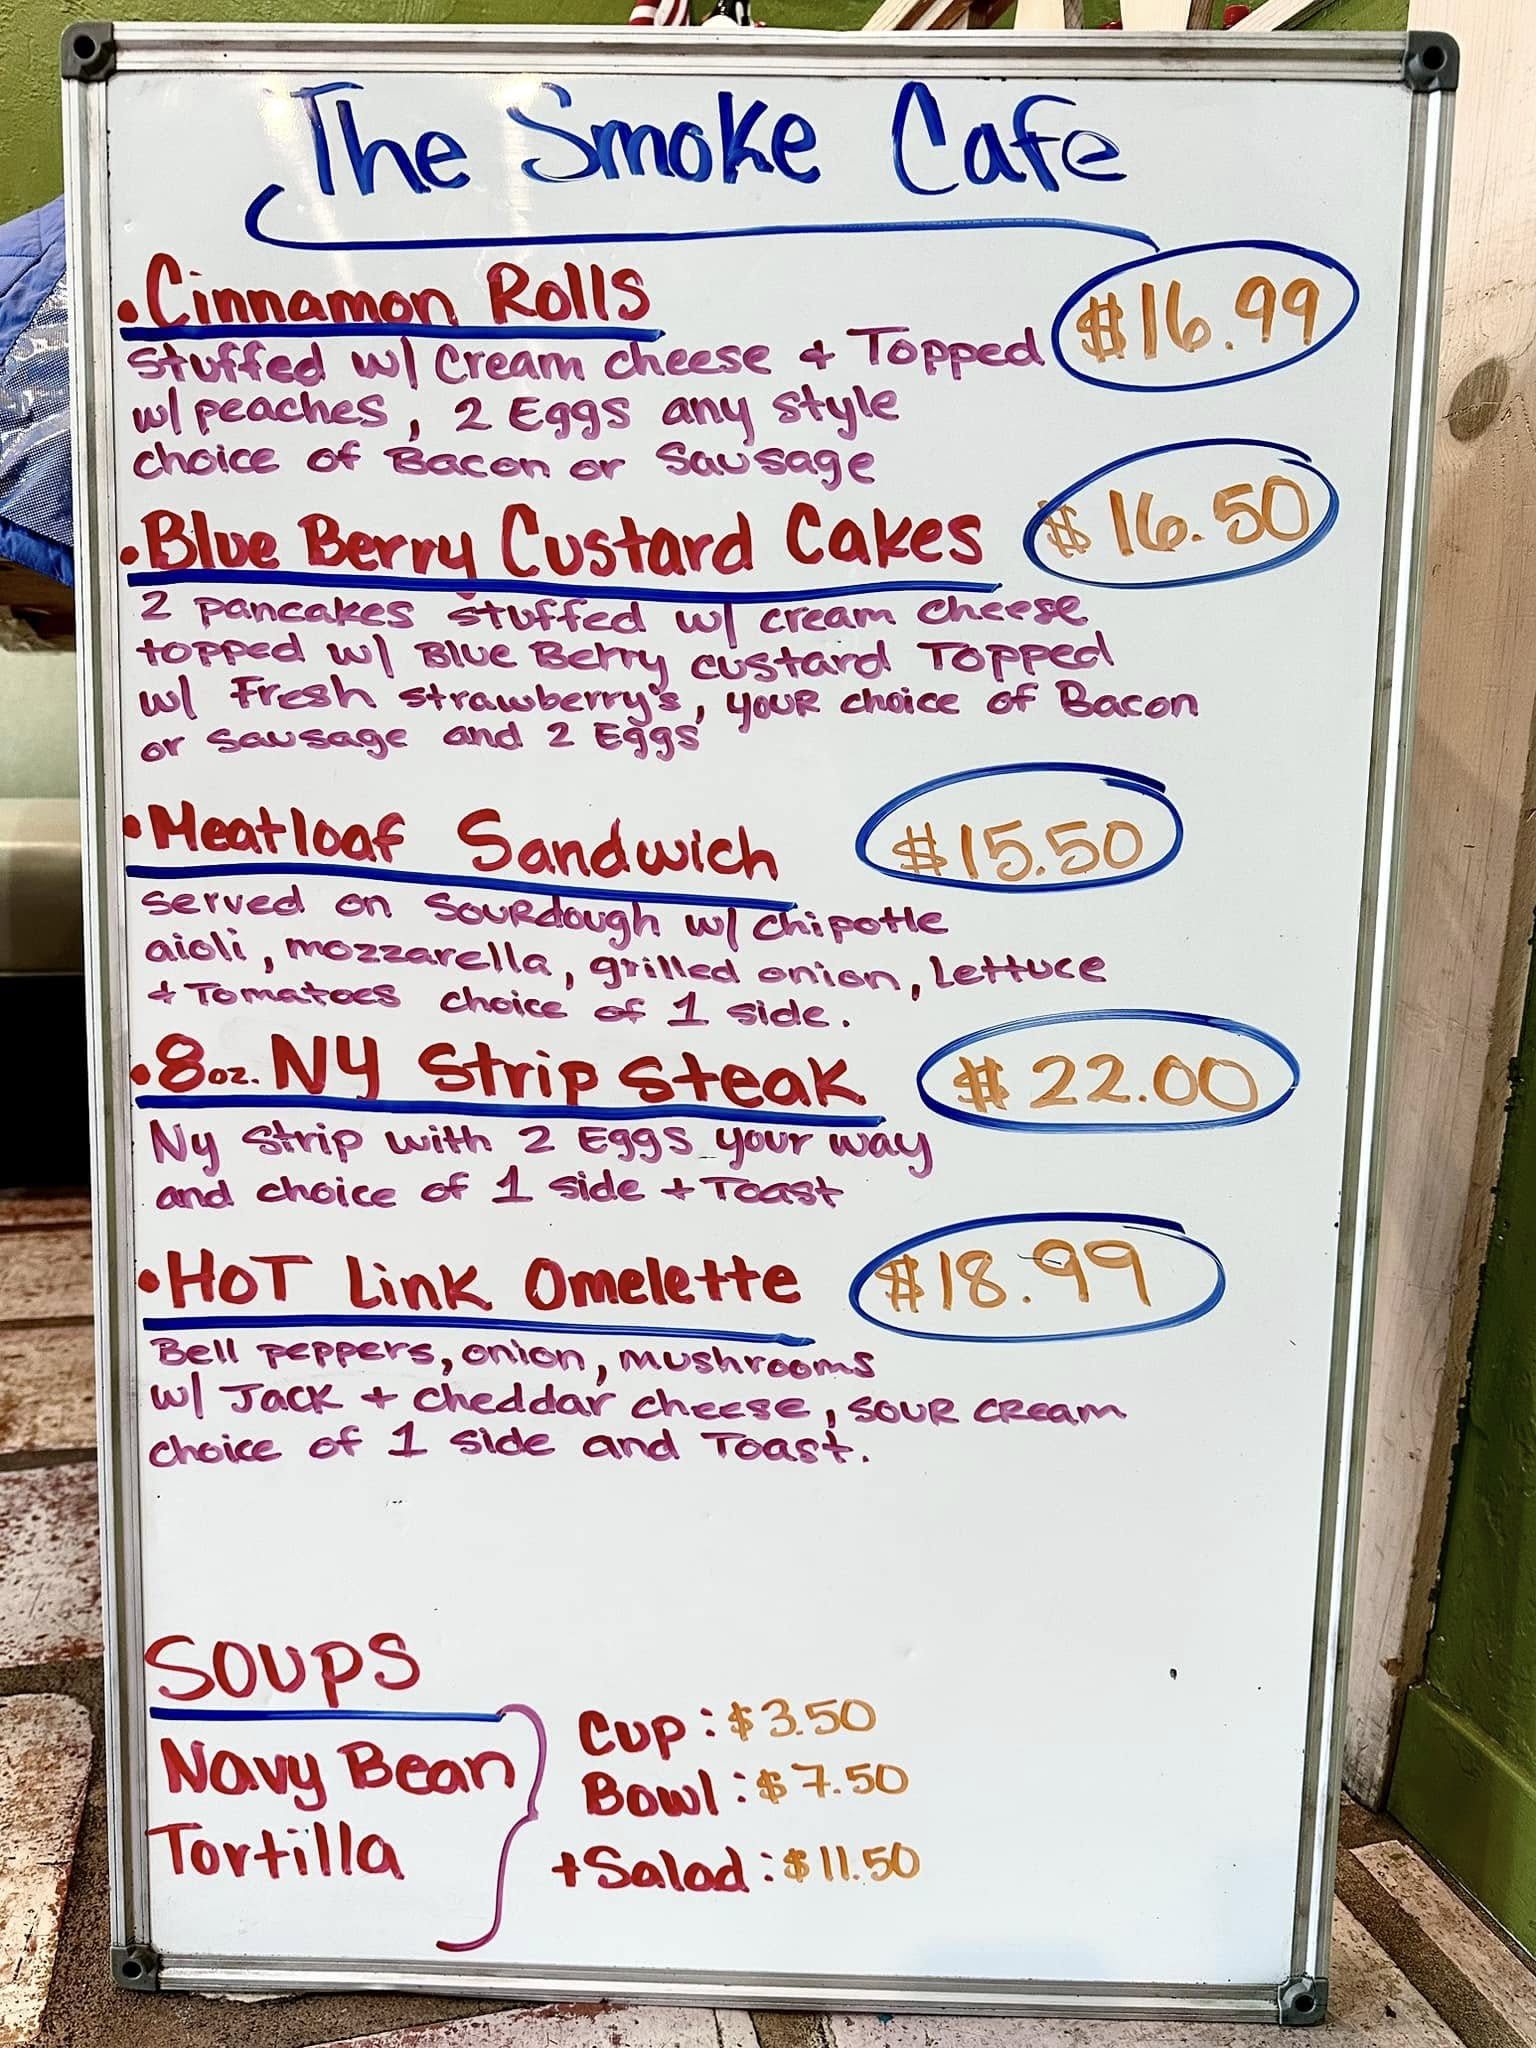 The Smoke Cafe
• Cinnamon Rolls $16.99
stuffed w/ Cream cheese + Topped
w/ peaches, 2 Eggs any style
choice of Bacon or Sausage
• Blue Berry Custard Cakes $16.50
2 pancakes stuffed w/ cream cheese
topped w/ Blue Berry custard Topped
w/ Fresh strawberry's, your choice of Bacon
or sausage and 2 Eggs
• Meatloaf Sandwich $15.50
served on sourdough w/ chipotle
aioli, mozzarella, grilled onion, Lettuce
+ Tomatoes choice of 1 side.
• 8oz. NY Strip Steak $22.00
Ny Strip with 2 Eggs your way
and choice of 1 side + Toast
• HOT Link Omelette $18.99
Bell peppers, onion, mushrooms
w/ Jack + cheddar cheese, sour cream
choice of 1 side and Toast.
SOUPS
Navy Bean
Tortilla
Cup: $3.50
Bowl: $7.50
+Salad: $11.50